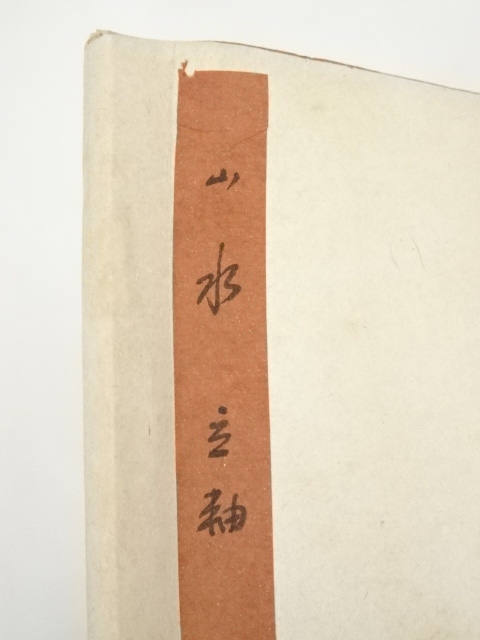 山水立軸